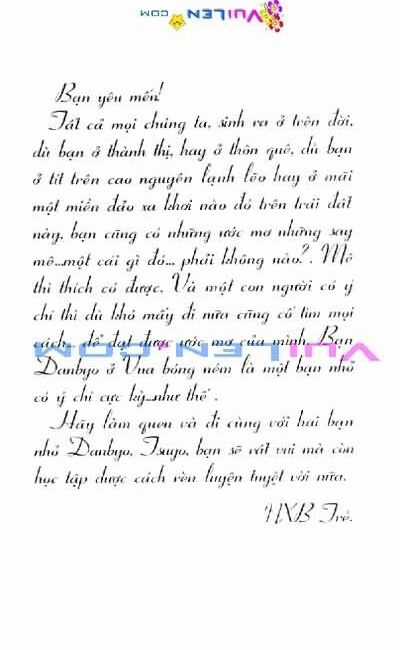 VUILEN.COM
Bạn yêu mến!
Tất cả mọi chúng ta, sinh ra ở trên đời,
dù bạn ở thành thị, hay ở thôn quê, dù bạn
ở tít trên cao nguyên lạnh lẽo hay ở mãi
một miền đảo xa khơi nào đó trên trái đất
này, bạn cũng có những ước mơ những say
mê...một cái gì đó... phải không nào?. Mê
thì thích có được. Và một con người có ý
chí thì dù khó mấy đi nữa cũng cố tìm mọi
cách... để đạt được ước mơ của mình. Bạn
VUILEN.COM
Danbyo ở Una bóng ném là một bạn nhỏ
có ý chí cực kỳ...như thế.
Hãy làm quen và đi cùng với hai bạn
nhỏ Danbyo, Tsuyo, bạn sẽ rất vui mà còn
học tập được cách rèn luyện tuyệt vời nữa.
NXB Trẻ.